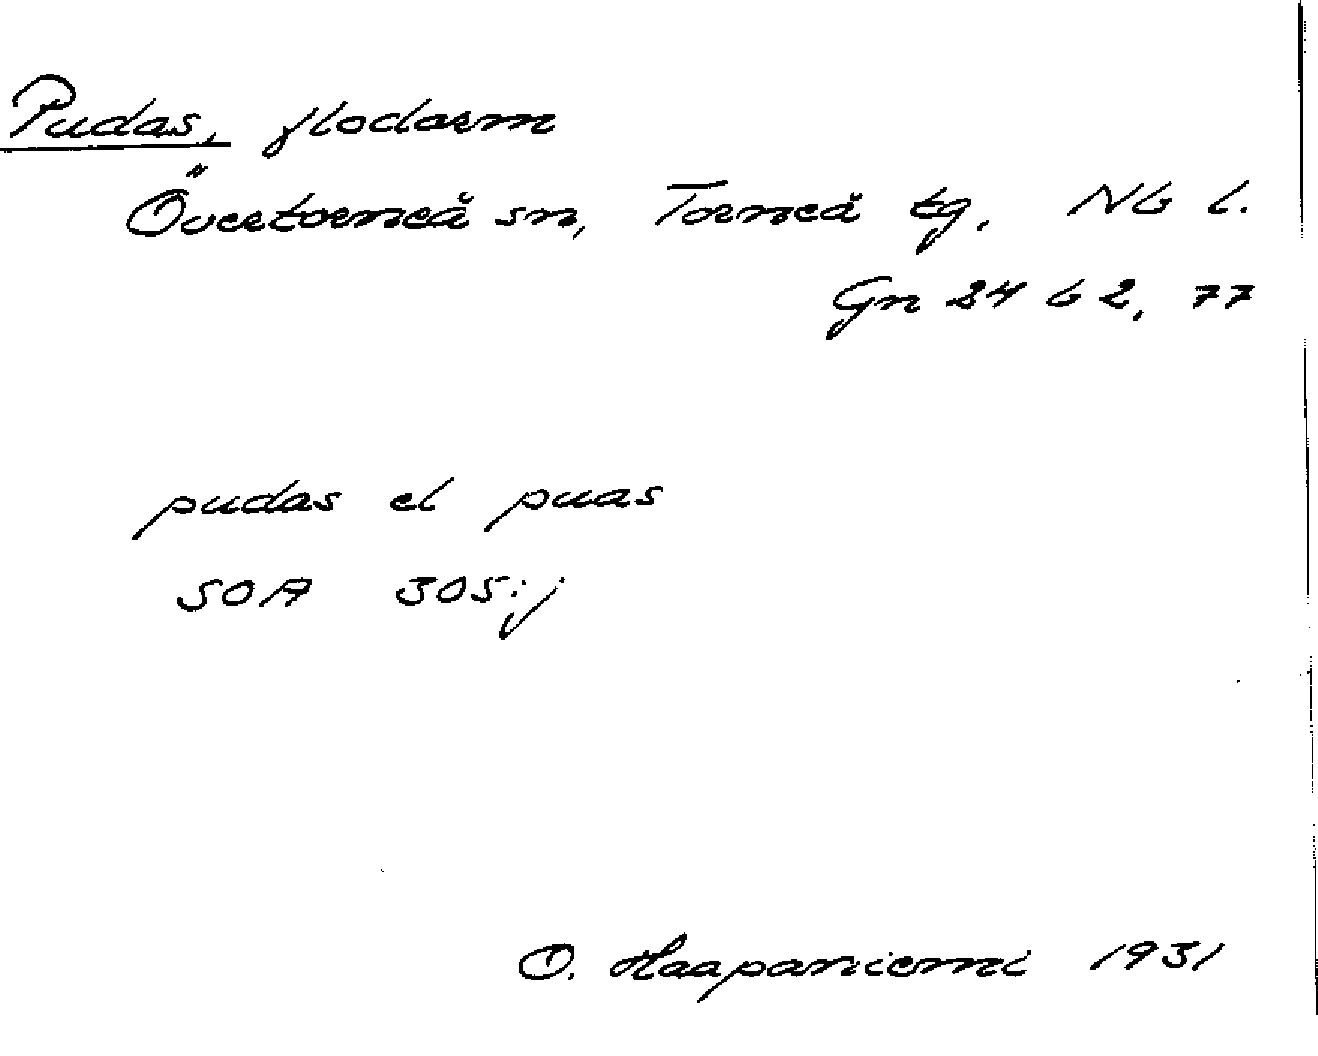 Pudas, flodarm
Övertorneå sn, Torneå tg, Nb l.
Gn 24 b 2, 77
pudas el puas
SOA 305:j
O. Haapaniemi 1931